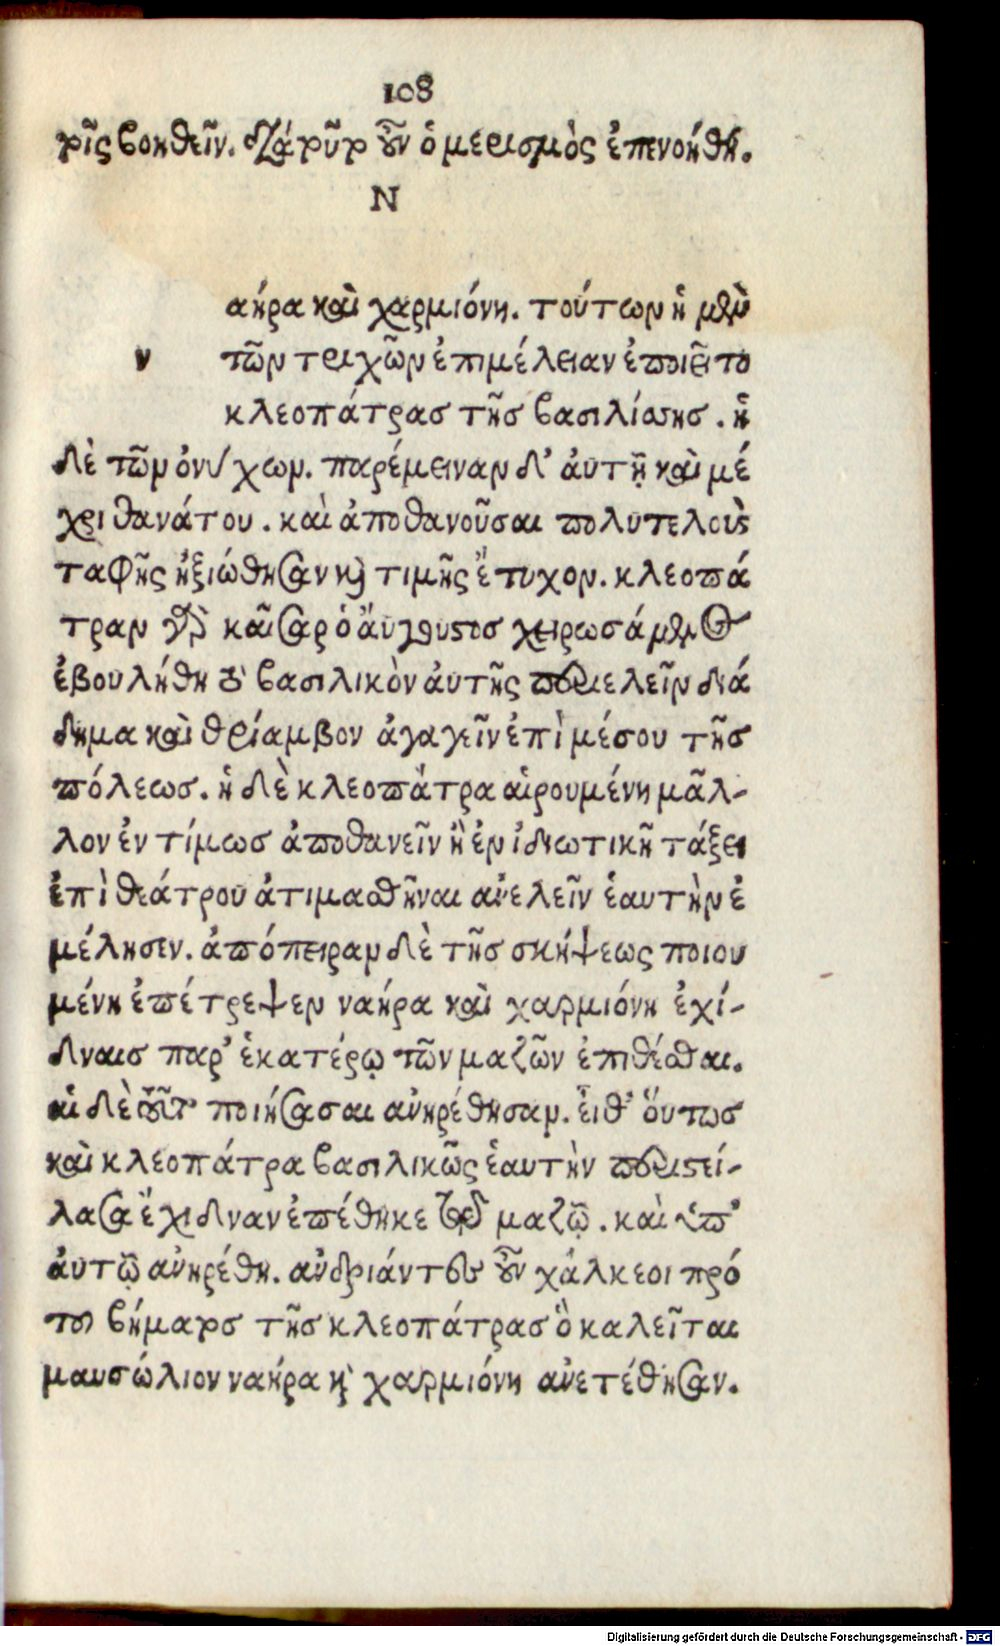 108
ρῖς βοηθεῖν. διὰ τοῦτο οὖν ὁ μερισμὸς ἐπενοήθη.
Ν
αήρα καὶ χαρμιόνη. τούτων ἡ μὲν
ν τῶν τριχῶν ἐπιμέλειαν ἐποιεῖτο
κλεοπάτρας τῆς βασιλίσσης. ἡ
δὲ τῶν ὀνύχων. παρέμειναν δ' ἀυτῇ καὶ μέ
χρι θανάτου. καὶ ἀποθανοῦσαι πολυτελοῦς
ταφῆς ἠξιώθησαν καὶ τιμῆς ἔτυχον. κλεοπά
τραν γὰρ καῖσαρ ὁ ἄυγουστος χειρωσάμενος
ἐβουλήθη τὸ βασιλικὸν ἀυτῆς περιελεῖν διά
δημα καὶ θρίαμβον ἀγαγεῖν ἐπὶ μέσου τῆς
πόλεως. ἡ δὲ κλεοπάτρα αἱρουμένη μᾶλ-
λον ἐντίμως ἀποθανεῖν ἢ ἐν ἰδιωτικῇ τάξει
ἐπὶ θεάτρου ἀτιμασθῆναι ἀνελεῖν ἑαυτὴν ἐ
μέλησεν. ἀπόπειραν δὲ τῆς σκήψεως ποιου
μένη ἐπέτρεψεν ναήρα καὶ χαρμιόνη ἐχί-
δναις παρ' ἑκατέρῳ τῶν μαζῶν ἐπιθέσθαι.
αἱ δὲ τοῦτο ποιήσασαι ἀνηρέθησαν. εἶθ' ὅυτως
καὶ κλεοπάτρα βασιλικῶς ἑαυτὴν περιστεί-
λασα ἔχιδναν ἐπέθηκε τῷ μαζῷ. καὶ ὑπ'
ἀυτῷ ἀνηρέθη. ἀνδριάντες οὖν χάλκεοι πρό
του βήματος τῆς κλεοπάτρας ὃ καλεῖται
μαυσώλιον ναήρα καὶ χαρμιόνη ἀνετέθησαν.
Digitalisierung gefördert durch die Deutsche Forschungsgemeinschaft - DFG